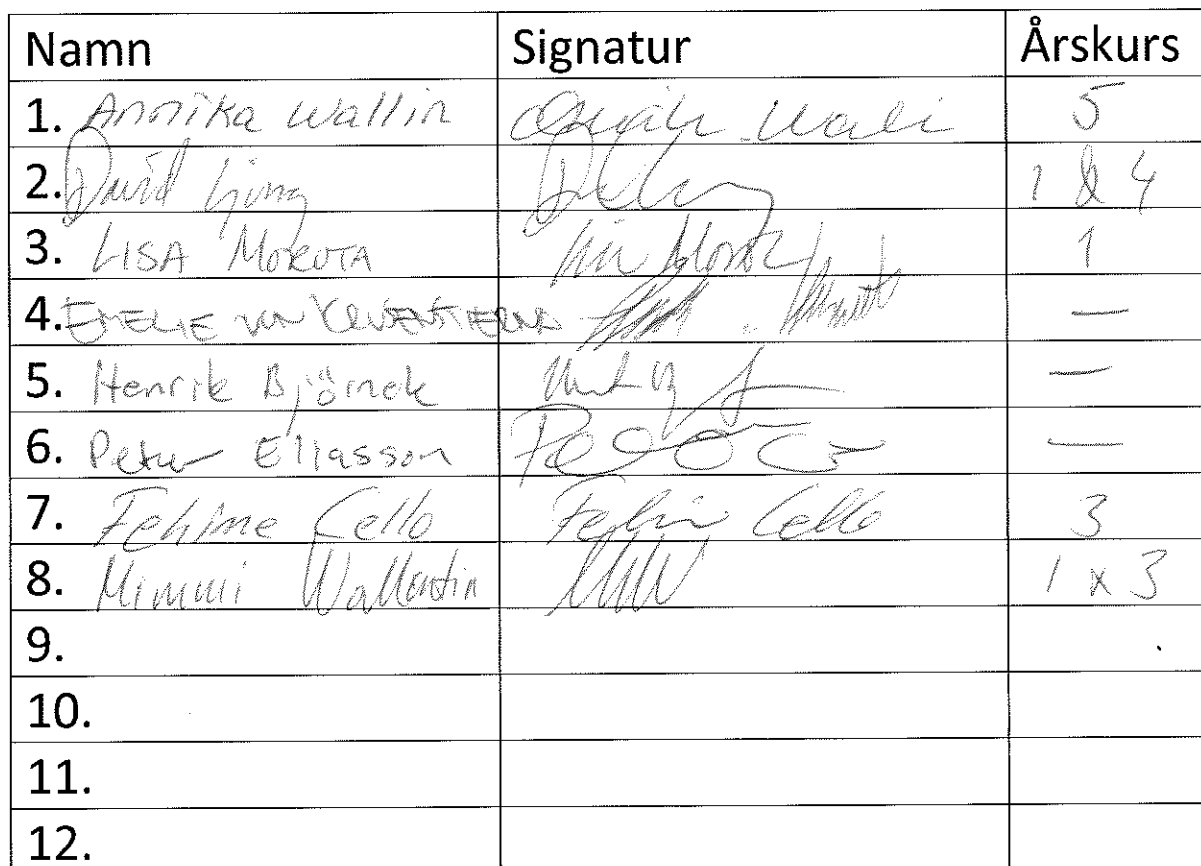 Namn Signatur Årskurs
1. Annika Wallin 5
2. David Ljung 1 & 4
3. LISA MOROTA 1
4. EMELIE VON —
5. Henrik Björnek —
6. Peter Eliasson —
7. Fehime Cello Fehime Cello 3
8. Mimmi Wallentin MW 1 x 3
9.
10.
11.
12.